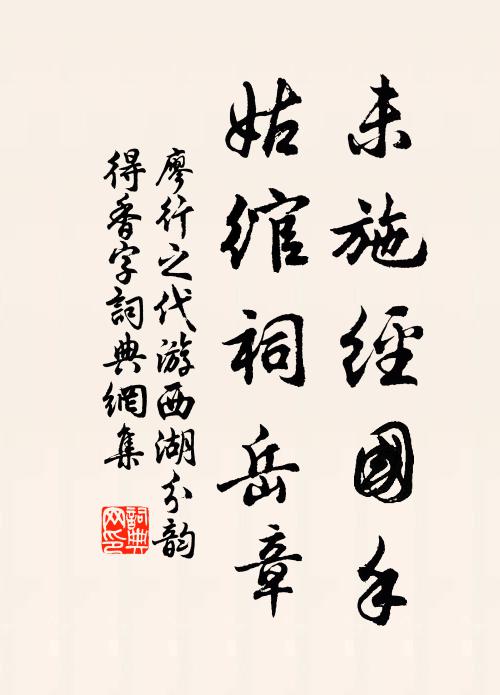 未施經國手
姑綰祠岳章
廖行之代游西湖分韵
得香字詞典網集
詞典网印